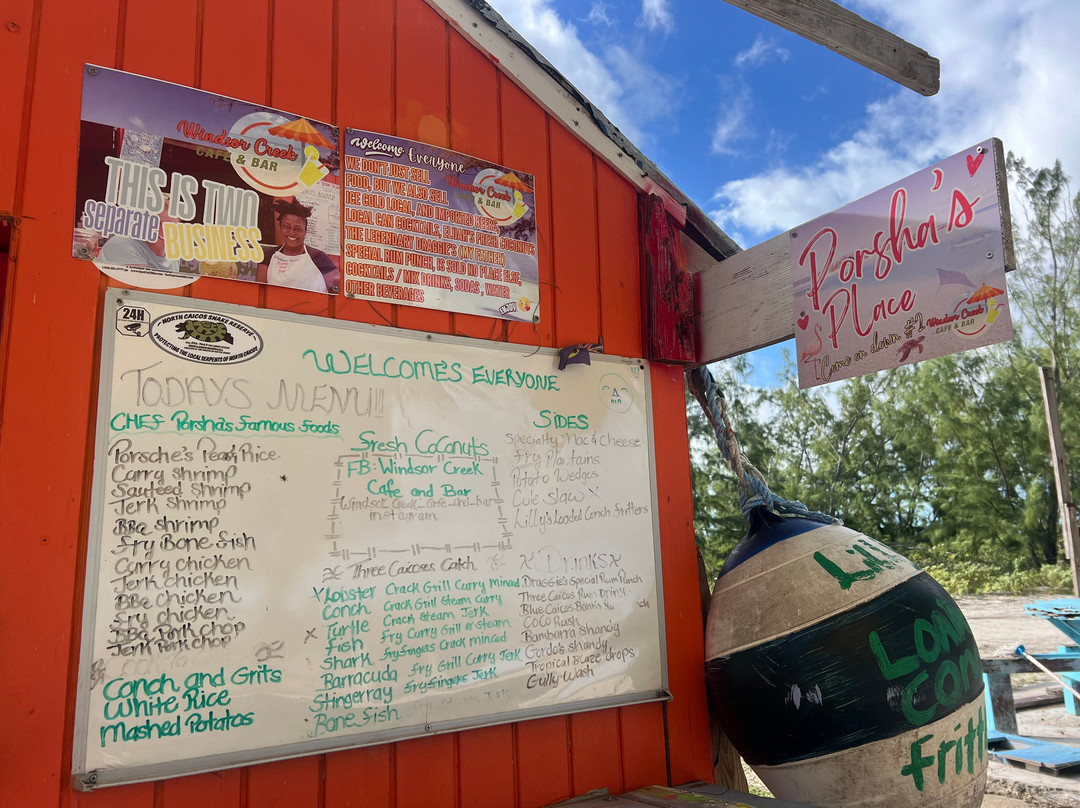 Windsor Creek
CAFE & BAR
THIS IS TWO
separate BUSINESS
Welcome Everyone
WE DON'T JUST SELL
FOOD, BUT WE ALSO SELL
ICE COLD LOCAL, AND IMPORTED BEERS,
LOCAL CAN COCKTAILS, ELIJAH'S FRESH COCONUTS
THE LEGENDARY DRAGGIE'S (MY FATHER)
SPECIAL RUM PUNCH, IS SOLD NO PLACE ELSE,
COCKTAILS / MIX DRINKS, SODAS, WATER
OTHER BEVERAGES
ENJOY
Windsor Creek
& BAR
Porsha's
Place
Come on down #2
Windsor Creek
CAFE & BAR
24H
NORTH CAICOS SNAKE RESERVE
FOR THE LOCAL SERPENTS OF NORTH CAICOS
WELCOME'S EVERYONE
TODAYS MENU!!!
CHEF Porsha's Famous Foods
Porsche's Peas Rice
Curry Shrimp
Sauteed Shrimp
Jerk Shrimp
BBQ Shrimp
Fry Bone fish
Curry chicken
Jerk chicken
BBQ chicken
fry chicken
BBQ Pork chop
Jerk Pork chop
Conch and Grits
White Rice
Mashed Potatoes
Fresh Coconuts
FB: Windsor Creek
Cafe and Bar
Windsor_Creek_Cafe_and_bar
instagram
Three Caicoses Catch
x Lobster Crack Grill Curry minced
Conch Crack Grill Steam Curry
x Turtle Crack Steam Jerk
fish Fry Curry Grill or Steam
Shark fryfingers Crack minced
Barracuda fry Grill Curry Jerk
Stingerray fryfingers Jerk
Bone fish
SIDES
Specialty Mac & Cheese
Fry Plantains
Potato Wedges
Cole Slaw x
Lilly's Loaded Conch fritters
x Drinks x
Draggie's Special Rum Punch
Three Caicos Rum Drink
Blue Caicos
Coco Rush
Bambarra Shandy
Gordo's Shandy
Tropical Blaze Drops
Gully Wash